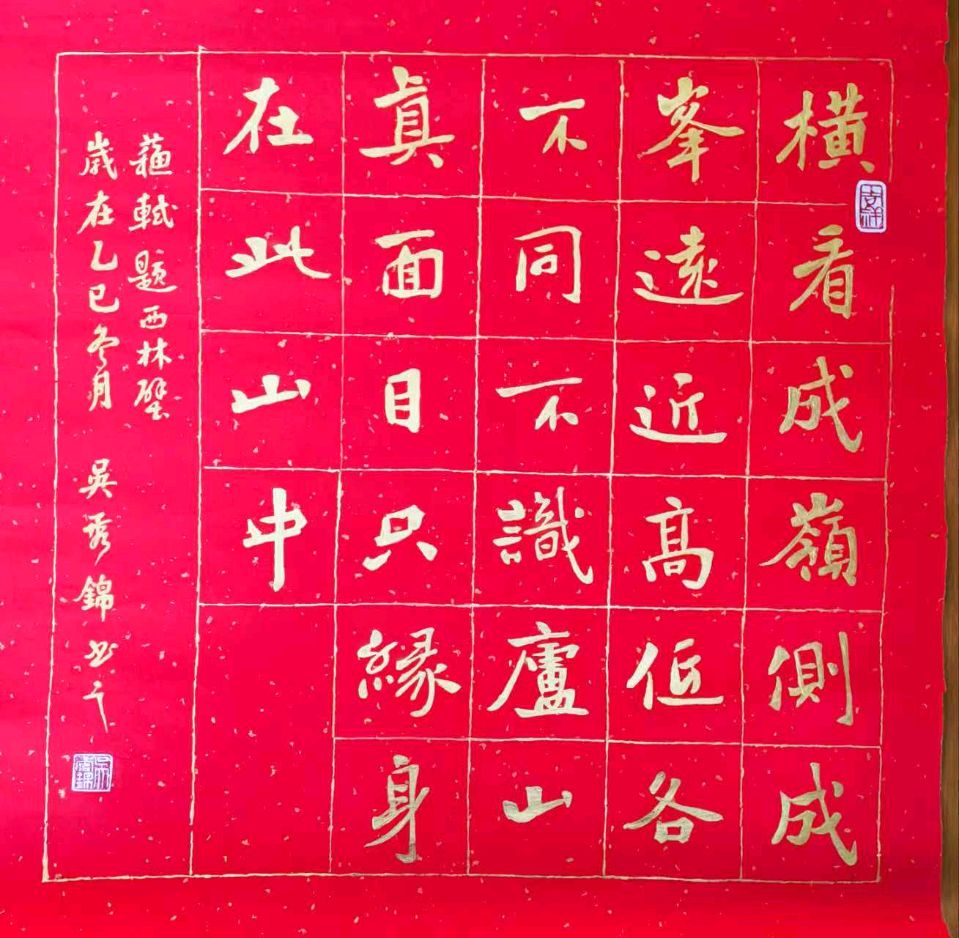 橫看成嶺側成
峯遠近高低各
不同不識廬山
真面目只緣身
在此山中
蘓軾題西林壁
歲在乙巳冬月 吳秀錦书于
吉祥